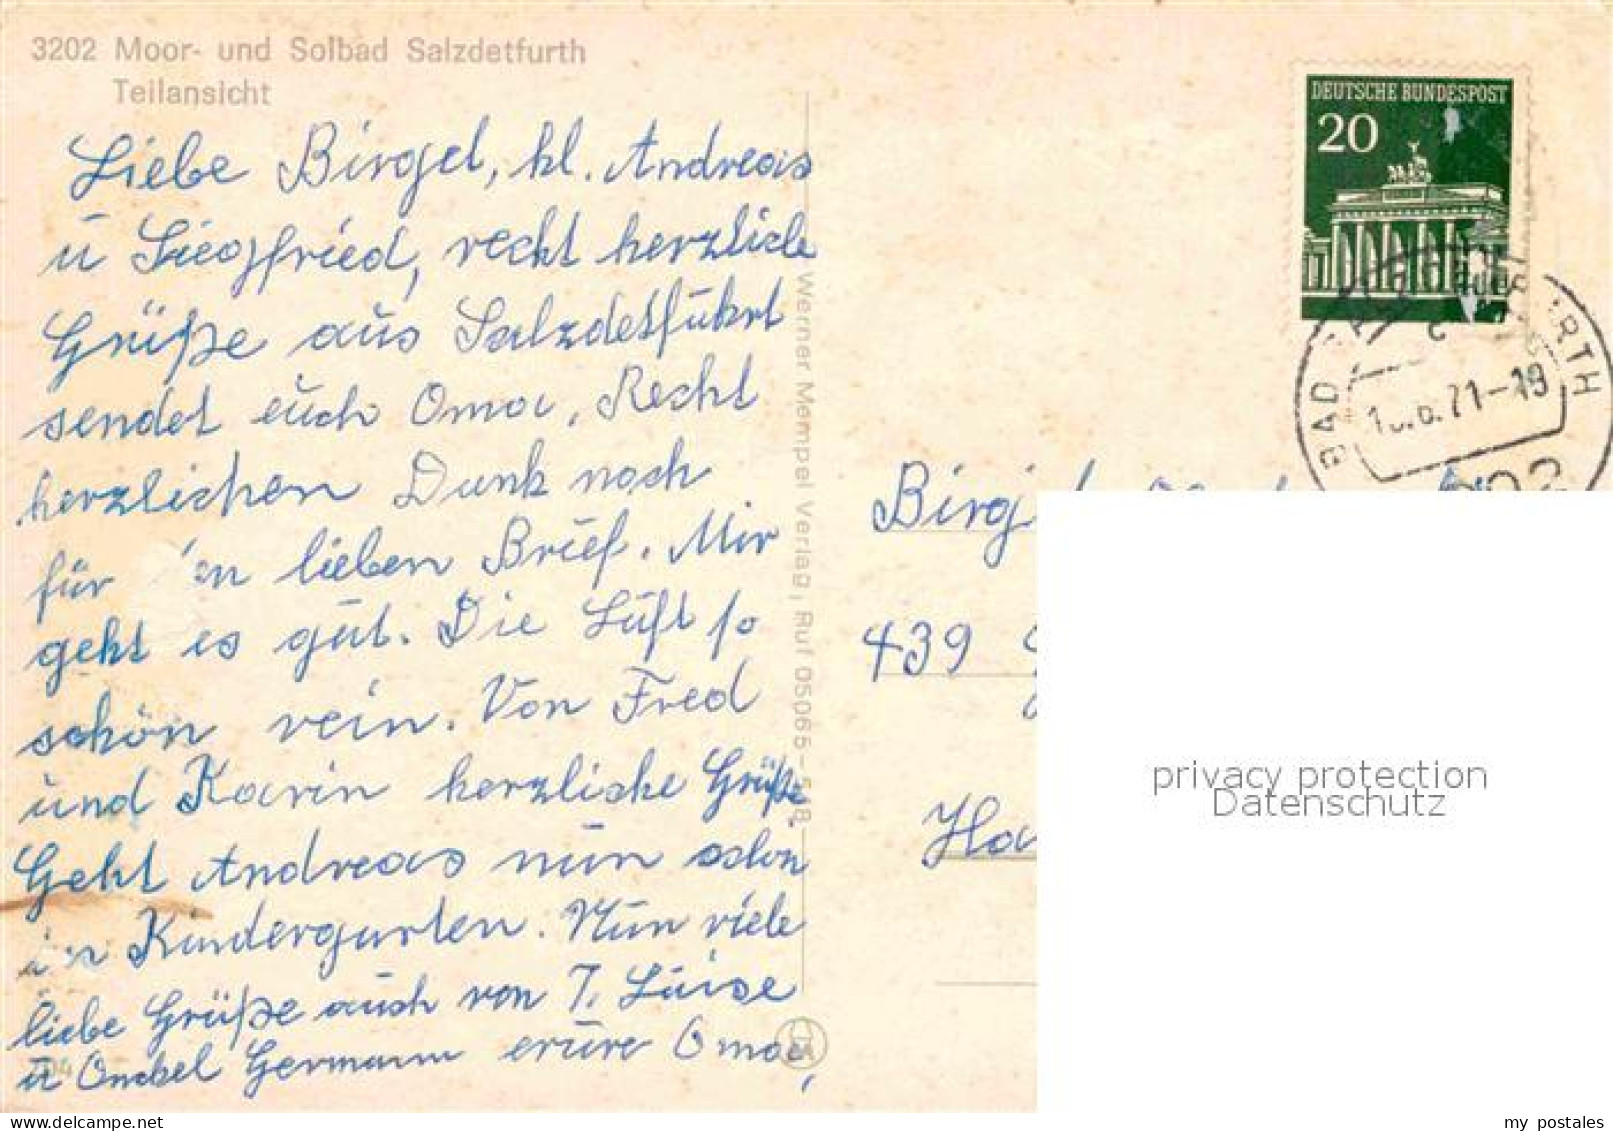 3202 Moor- und Solbad Salzdetfurth
Teilansicht
Liebe Birgel, kl. Andreas
u Siegfried, recht herzliche
Grüße aus Salzdetfuhrt
sendet euch Oma, Recht
herzlichen Dank noch
für lieben Brief. Mir
geht es gut. Die Luft so
schön rein. Von Fred
und Karin herzliche Grüße
Geht Andreas nun schon
in Kindergarten. Nun viele
liebe Grüße auch von T. Luise
u Onkel Germann eure Oma,
Werner Mempel Verlag, Ruf 05065 -
DEUTSCHE BUNDESPOST
20
BAD
71-19
439
Ha
privacy protection
Datenschutz
my postales